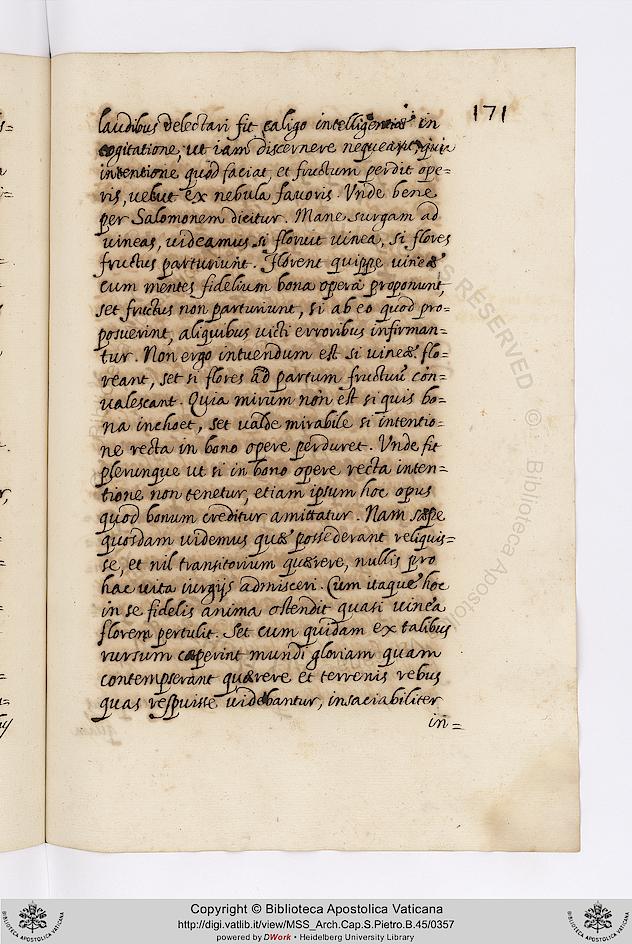 171
laudibus delectari fit caligo intelligentiæ in
cogitatione, ut iam discernere nequeat, qua
intentione quod faciat, et fructum perdit ope=
ris, uelut ex nebula fauoris. Vnde bene
per Salomonem dicitur. Mane surgam ad
uineas, uideamus si floruit uinea, si flores
fructus parturiunt. Florent quippe uineæ
cum mentes fidelium bona opera proponunt,
set fructus non parturiunt, si ab eo quod pro=
posuerint, aliquibus uicti erroribus infirman=
tur. Non ergo intuendum est si uineæ flo=
reant, set si flores ad partum fructuū con=
ualescant. Quia mirum non est si quis bo=
na inchoet, set ualde mirabile si intentio=
ne recta in bono opere perduret. Vnde fit
plerunque ut si in bono opere recta inten=
tione non tenetur, etiam ipsum hoc opus
quod bonum creditur amittatur. Nam sæpe
quosdam uidemus quæ possederant reliquis=
se, et nil transitorium quærere, nullis pro
hac uita iurgijs admisceri. Cum itaque hoc
in se fidelis anima ostendit quasi uinea
florem pertulit. Set cum quidam ex talibus
rursum cæperint mundi gloriam quam
contempserant quærere et terrenis rebus
quas respuisse uidebantur, insaciabiliter
in=
Copyright © Biblioteca Apostolica Vaticana
http://digi.vatlib.it/view/MSS_Arch.Cap.S.Pietro.B.45/0357
powered by DWork • Heidelberg University Library